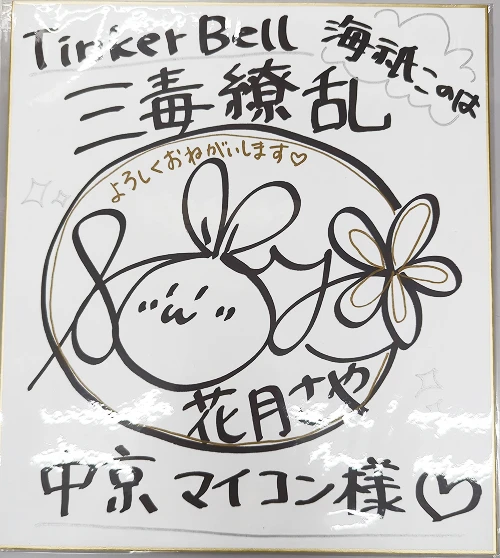 Tinker Bell
海祇このは
三毒繚乱
よろしくおねがいします♡
花月さや
中京マイコン様♡